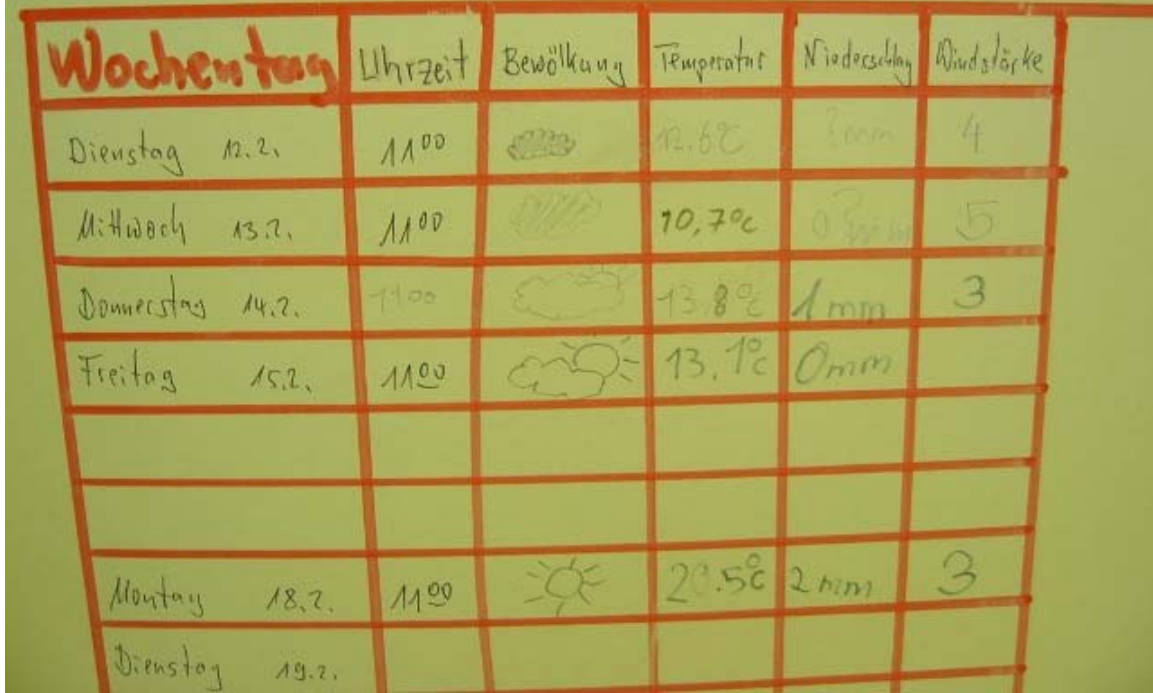 Wochentag Uhrzeit Bewölkung Temperatur Niederschlag Windstärke
Dienstag 12.2. 11 00 12.6°C ?mm 4
Mittwoch 13.2. 11 00 10,7°C 5
Donnerstag 14.2. 11 00 13.8°C 1mm 3
Freitag 15.2. 11 00 13.1°C 0mm
Montag 18.2. 11 00 20.5°C 2mm 3
Dienstag 19.2.